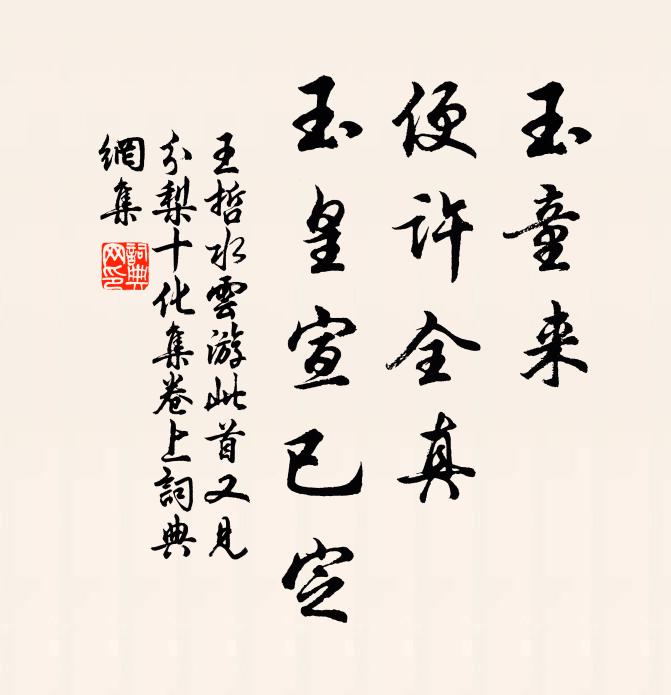 玉童来
便许全真
玉皇宣已定
王哲水雲游此首又見
分梨十化集卷上詞典
網集
詞典
网印